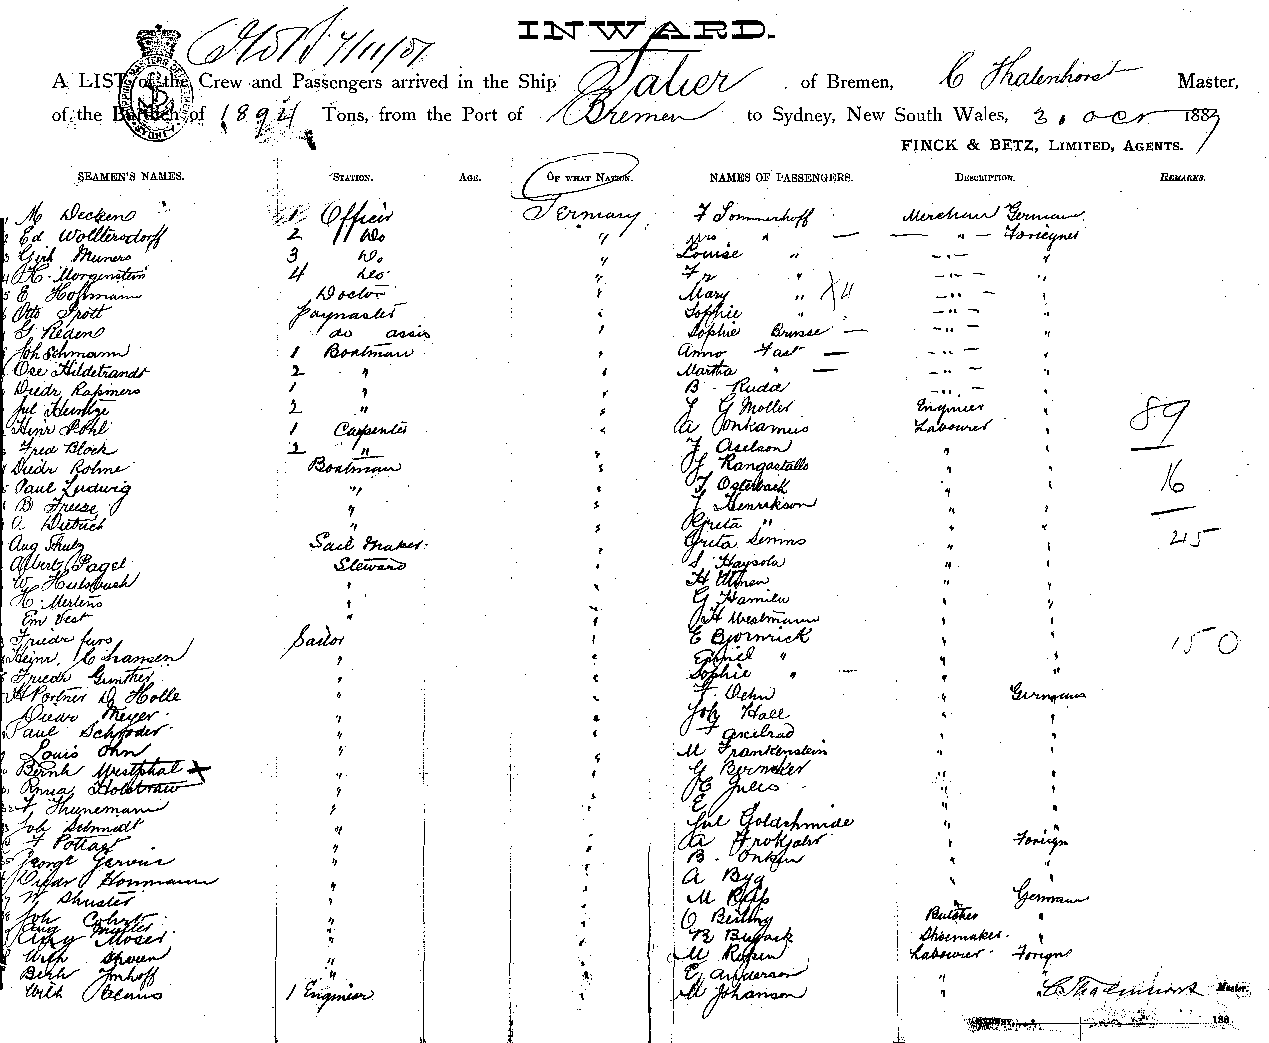 INWARD.
A LIST of the Crew and Passengers arrived in the Ship Salier of Bremen, C Thalenhorst Master,
of the Burthen of 1894 Tons, from the Port of Bremen to Sydney, New South Wales, 3. Oct 1887
FINCK & BETZ, LIMITED, AGENTS.
SEAMEN'S NAMES. STATION. AGE. OF WHAT NATION. NAMES OF PASSENGERS. DESCRIPTION. REMARKS.
M Decken 1 Officer Germany F Sommerhoff Merchan German
Ed Woltersdorff 2 Do " Mrs " — — " — Foreigner
Gerh Muners 3 Do " Louise " — " — "
H. Morgenstein 4 Do " Fr " — " — "
E Hoffmann Doctor " Mary " X4 — " — "
Otto Trott Paymaster " Sophie " — " — "
G Reden do assis " Sophie Brunse — — " — "
Joh Schmann 1 Boatman " Anno Fast — — " — "
Ose Hildebrandt 2 " " Martha " — — " — "
Diedr Rasmers 1 " " B Rudd — " — "
Jul Heintze 2 " " J G Moller Engineer " 89
Heinr Pohl 1 Carpenter " A Ponkamus Labourer "
Fred Block 2 " " J Axelson " "
Diedr Rohme Boatman " J Rangastallo " "
Paul Ludwig " " J Osterback " " 16
B Freese " " J Henrikson " "
A Dietrich " " Greta " " "
Aug Thulz Sail Maker " Greta Simms " " 45
Albert Pagel Steward " S Haysola " "
W Hulsbush " " H Ulmen " "
H. Mertens " " G Hamila " "
Em Vest " " H Westmann " "
Friedr furs Sailor " E Bjornvick " " 150
Heinr. C hansen " " " " "
Friedr Gunther " " Sophie " — " "
H Portner D Holle " " F. Dehn " Germans
Diedr Meyer " " Joh Hall " "
Paul Schröder " " F axelrad " "
Louis Ohn " " M Frankenstein " "
Bernh Westphal X " " G Berncker " "
Holstraw " " H Julis " "
F Thunemann " " E " "
Joh Schmidt " " Jul Goldschmide " "
F Pottast " " A Frokjahr " Foreign
George Gervius " " B. Onken " "
Diedr Honmann " " A Byg " "
W Shuster " " M Rapp " German
Joh Cohrt " " O Beiling Butcher "
Aug Muller
Moser " " R Bujack Shoemaker "
Wilh Spreen " " M Rosen Labourer Foreign
Berh Imhoff " " E Anderson " "
Wilh Adams 1 Engineer M Johanson " C Thalenhorst Master.
188